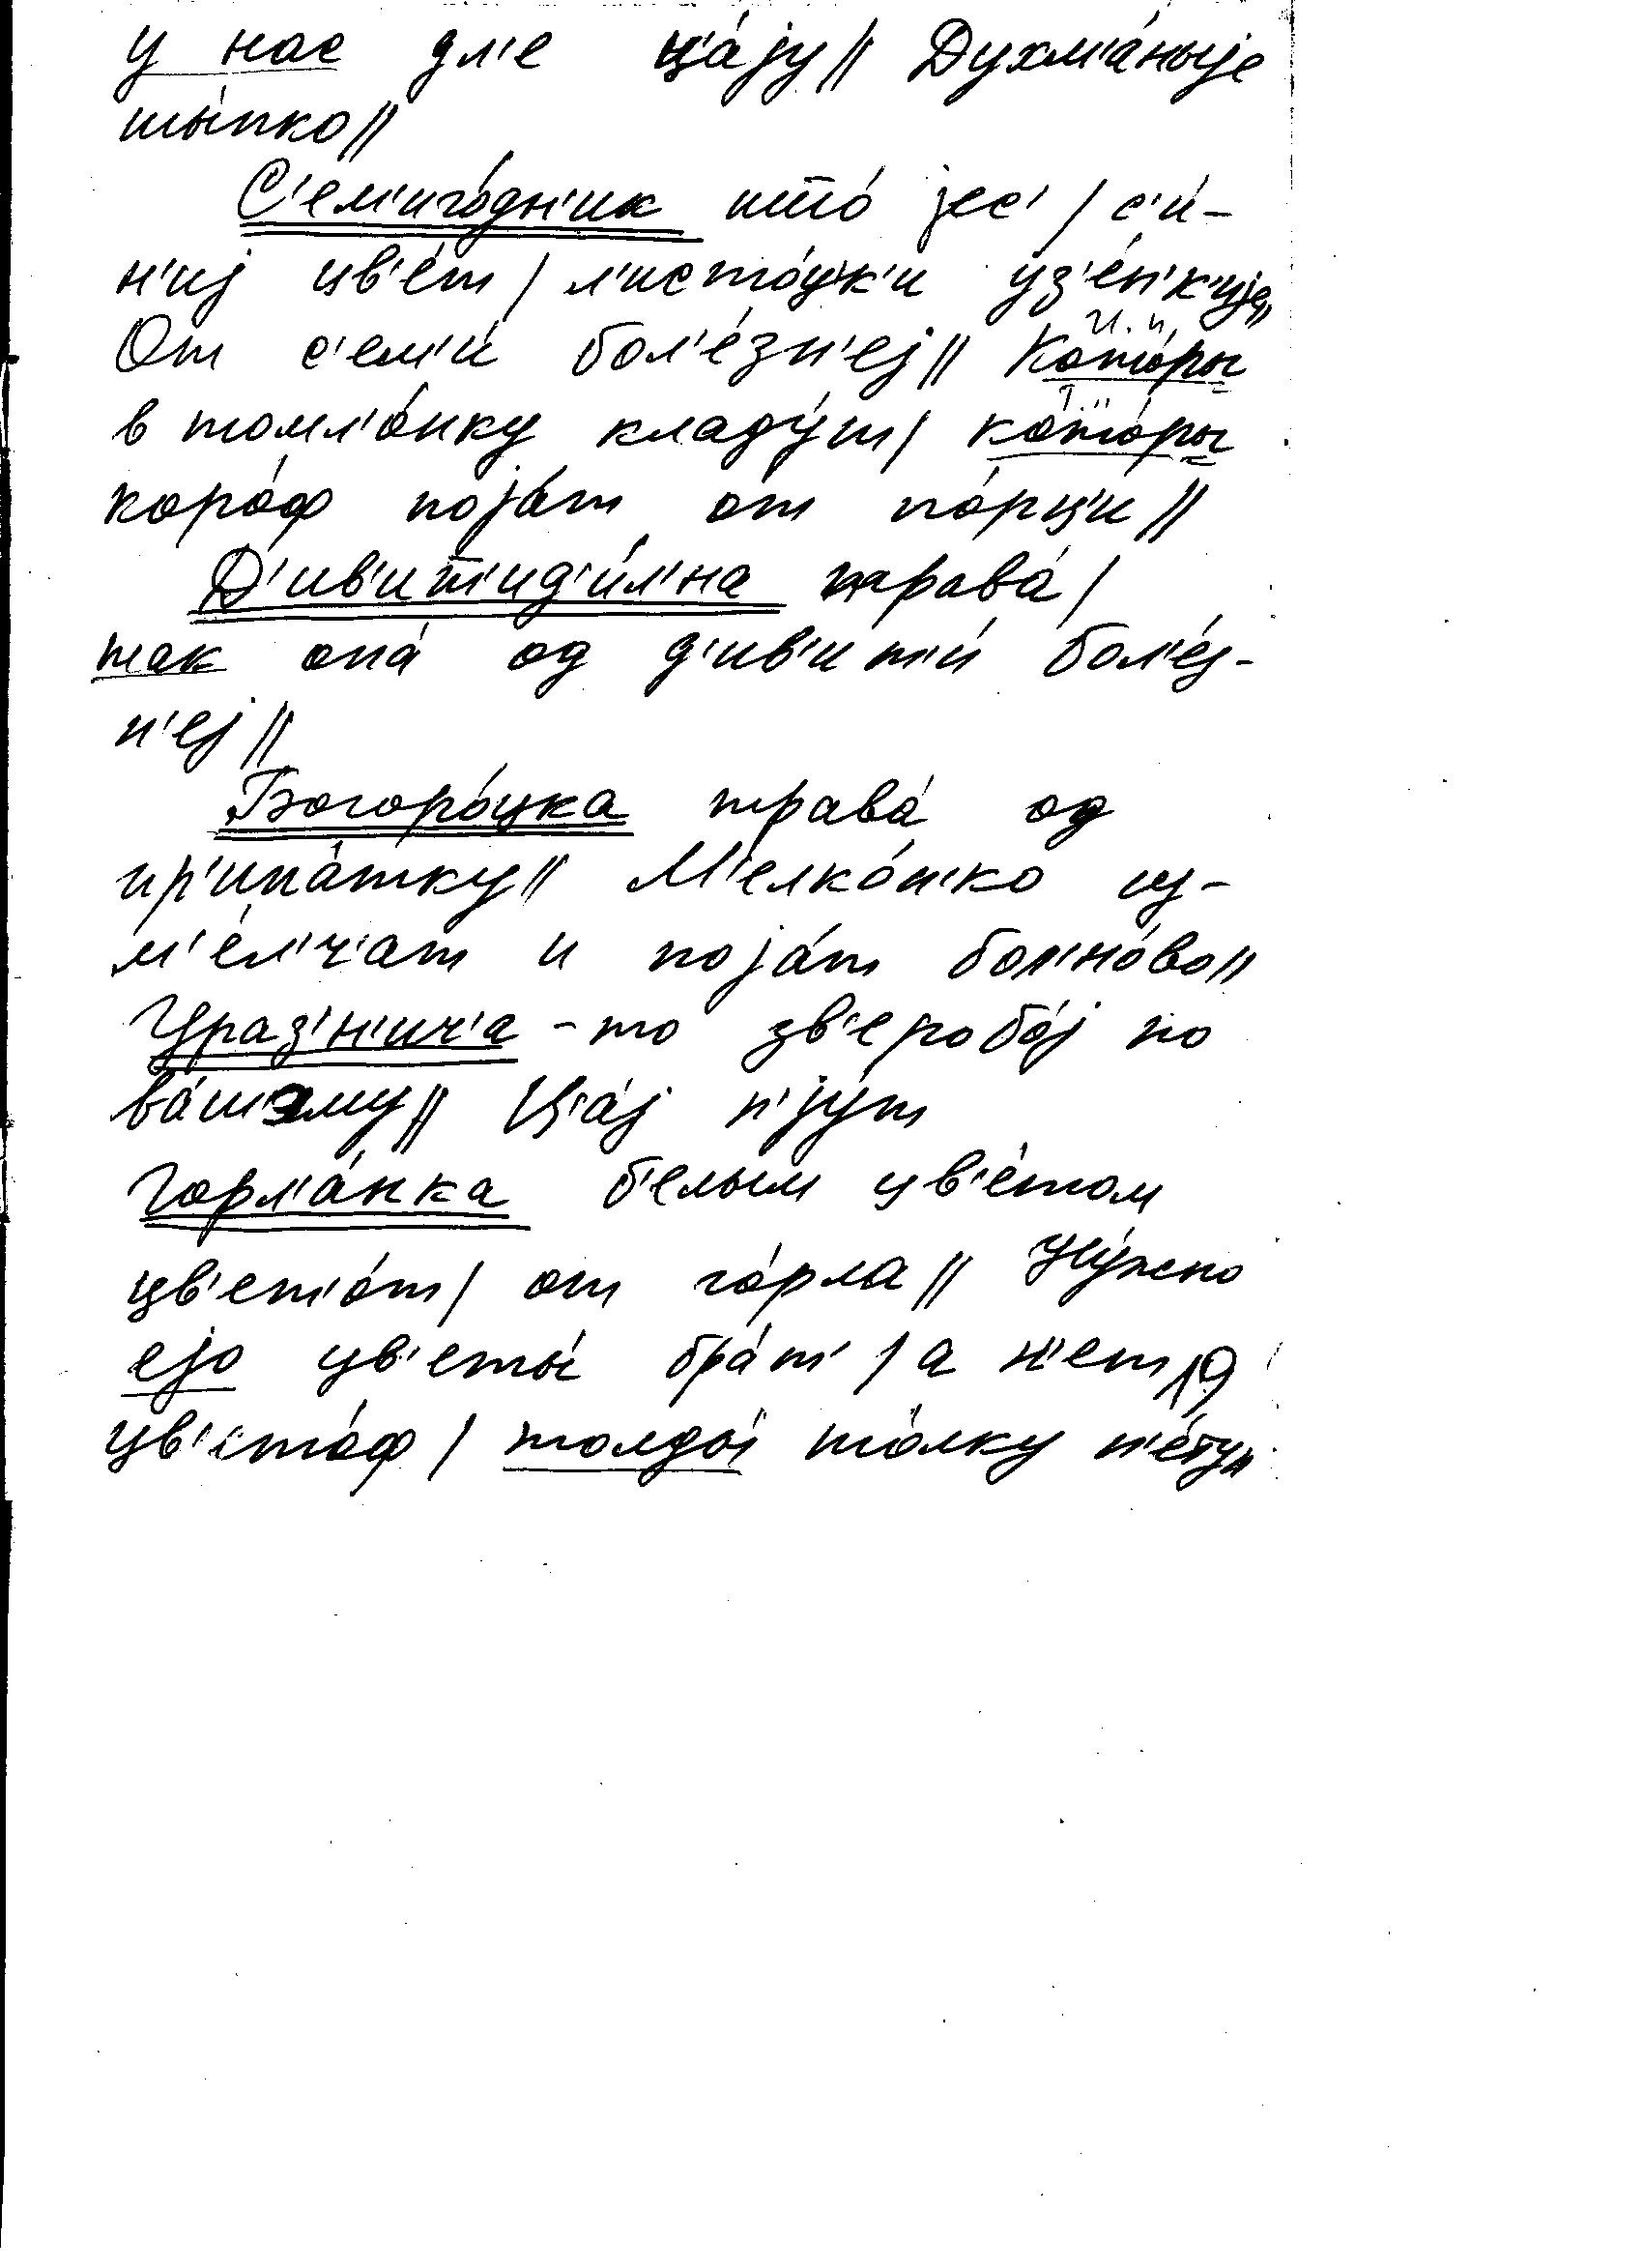 у нас дл'е ц'а́jу // Духм'а́ныjе
шы́пко //
С'ем'иго́дн'ик што́ jес' / с'и́-
н'иj цв'е́т / л'исто́цк'и уз'е́н'к'иjе //
От с'ем'и́ бол'е́зн'еj // Кото́ры
И.п.
в томл'о́нку кладу́т / кото́ры
коро́ф поjа́т от по́рц'и //
Д'ив'ит'ид'и́л'на трава́ /
так она́ од д'ив'ит'и́ бол'е́з-
н'еj //
Богоро́цка трава́ од
пр'ипа́тку // М'елко́н'ко из-
м'е́л'ч'ат и поjа́т бол'но́во //
Ураз'н'ич'а - то зв'еробо́j по
ва́шэму // Ц'а́j п'jу́т
Горл'а́нка б'е́лым цв'е́том
цв'ет'о́т / от го́рла // Ну́жно
еjо цв'еты́ бра́т' / а н'ет
19
цв'ето́ф / толды́ то́лку н'е́ту //